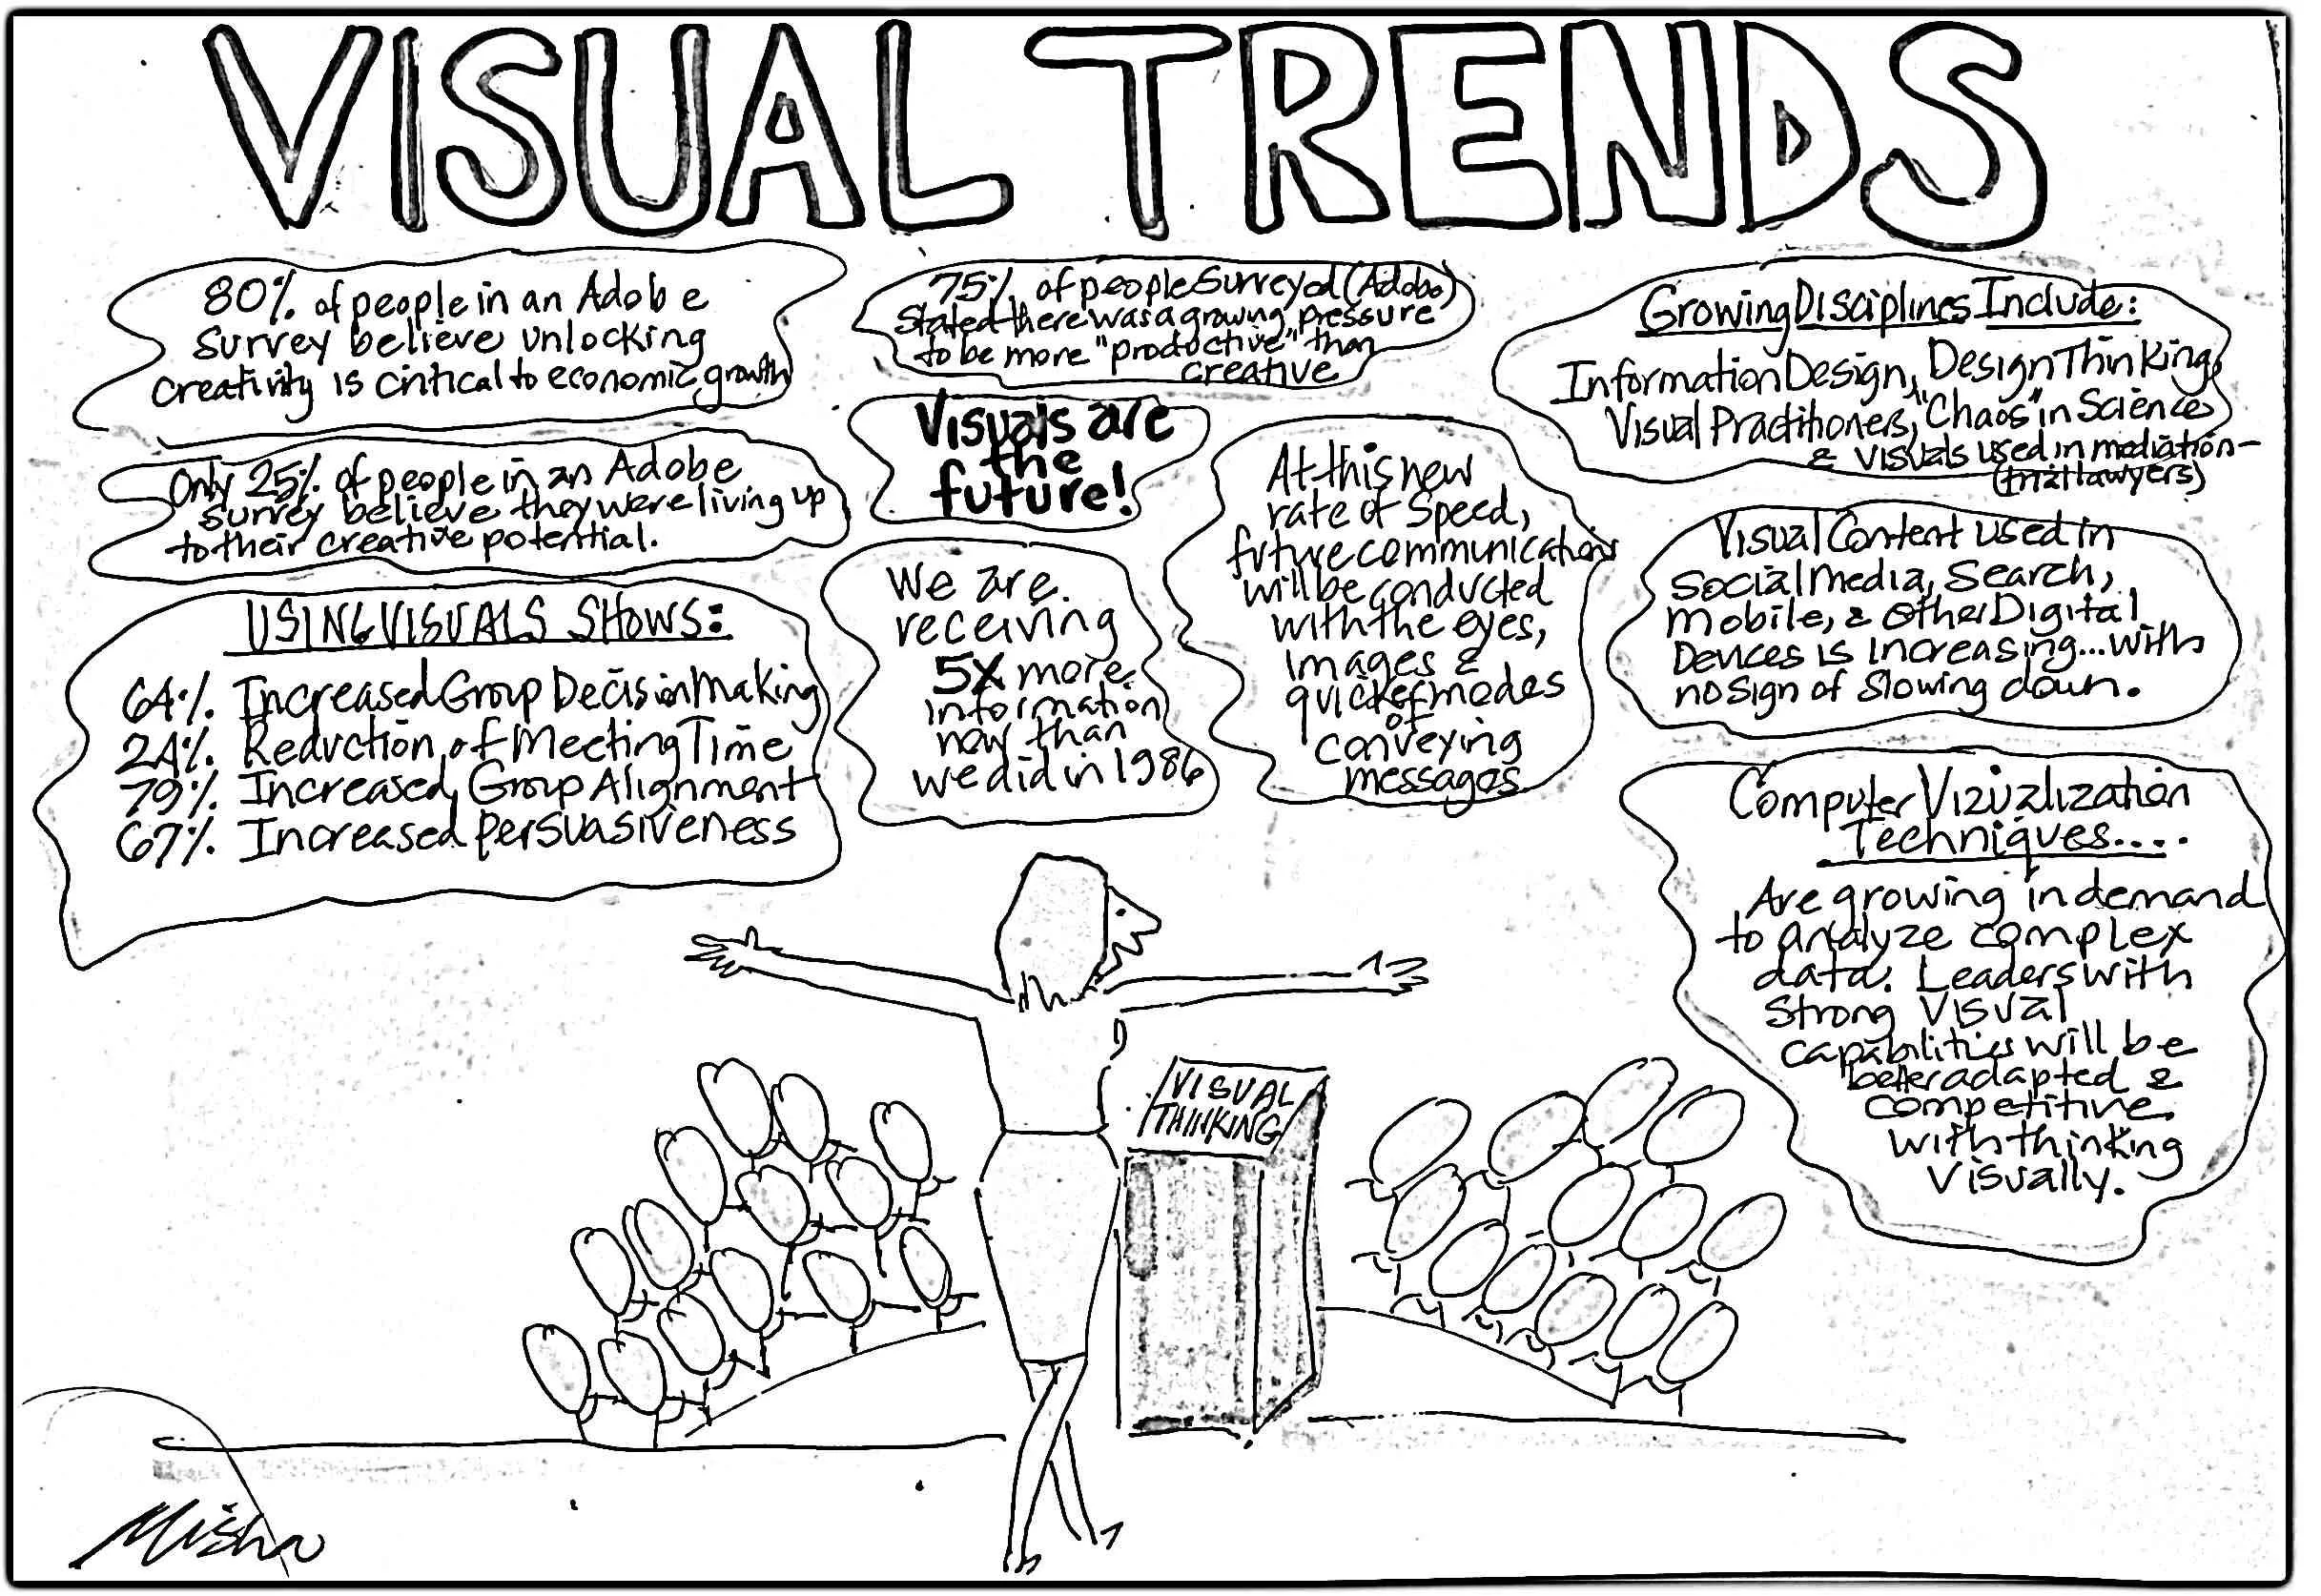 VISUAL TRENDS
80% of people in an Adobe
Survey believe unlocking
creativity is critical to economic growth
75% of people Surveyed (Adobe)
Stated there was a growing pressure
to be more "productive" than
creative
Growing Disciplines Include:
Information Design, Design Thinking,
Visual Practitioners, "Chaos" in Science
& visuals used in mediation-
(trial lawyers)
Only 25% of people in an Adobe
Survey believe they were living up
to their creative potential.
Visuals are
the
future!
At this new
rate of Speed,
future communications
will be conducted
with the eyes,
Images &
quicker modes
of
conveying
messages
Visual Content used in
Social Media, Search,
Mobile, & Other Digital
Devices is Increasing...with
no sign of slowing down.
USING VISUALS SHOWS:
64% Increased Group Decision Making
24% Reduction of Meeting Time
79% Increased Group Alignment
67% Increased Persuasiveness
We are
receiving
5X more
information
now than
we did in 1986
Computer Vizualization
Techniques....
Are growing in demand
to analyze complex
data. Leaders with
Strong Visual
capabilities will be
better adapted &
competitive
with thinking
Visually.
VISUAL
THINKING
Misha